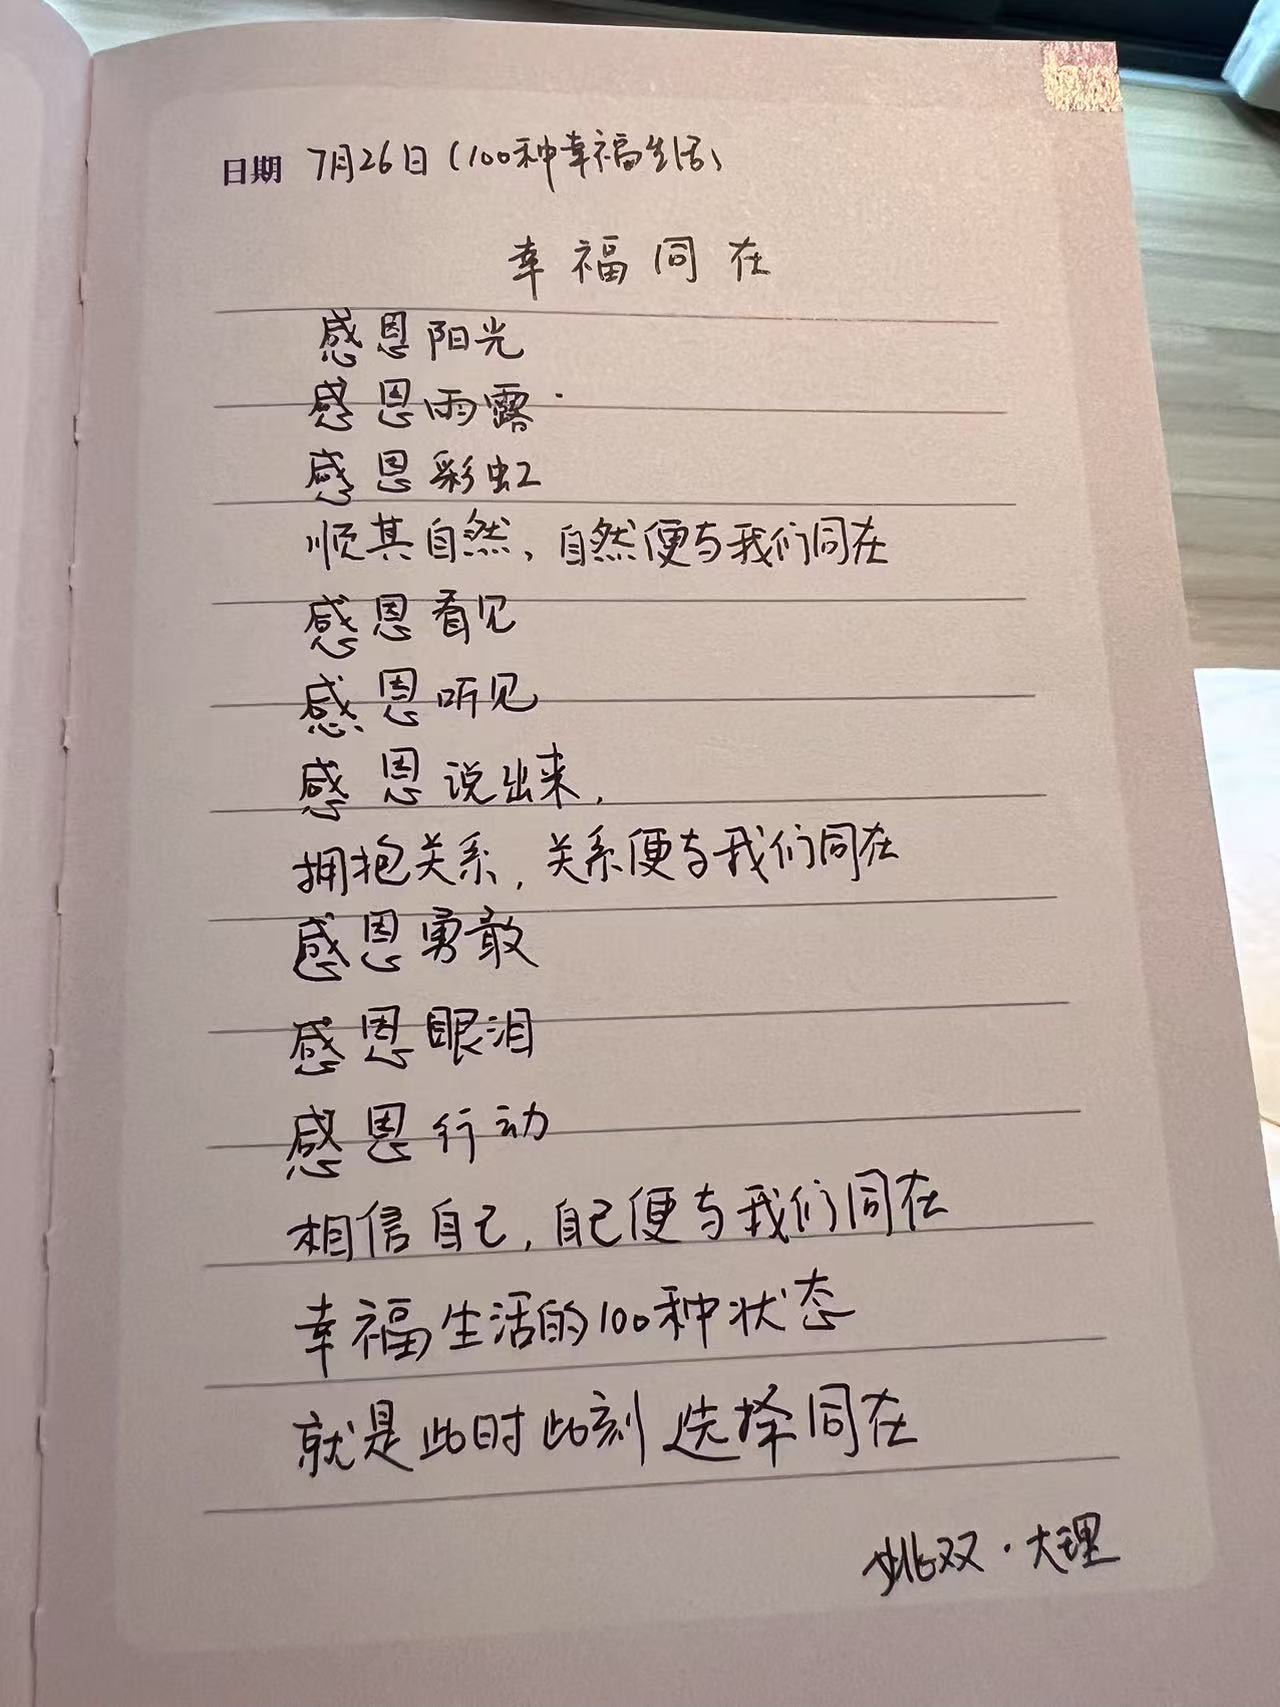 日期 7月26日(100种幸福生活)
幸福同在
感恩阳光
感恩雨露
感恩彩虹
顺其自然,自然便与我们同在
感恩看见
感恩听见
感恩说出来,
拥抱关系,关系便与我们同在
感恩勇敢
感恩眼泪
感恩行动
相信自己,自己便与我们同在
幸福生活的100种状态
就是此时此刻选择同在
姚双·大理